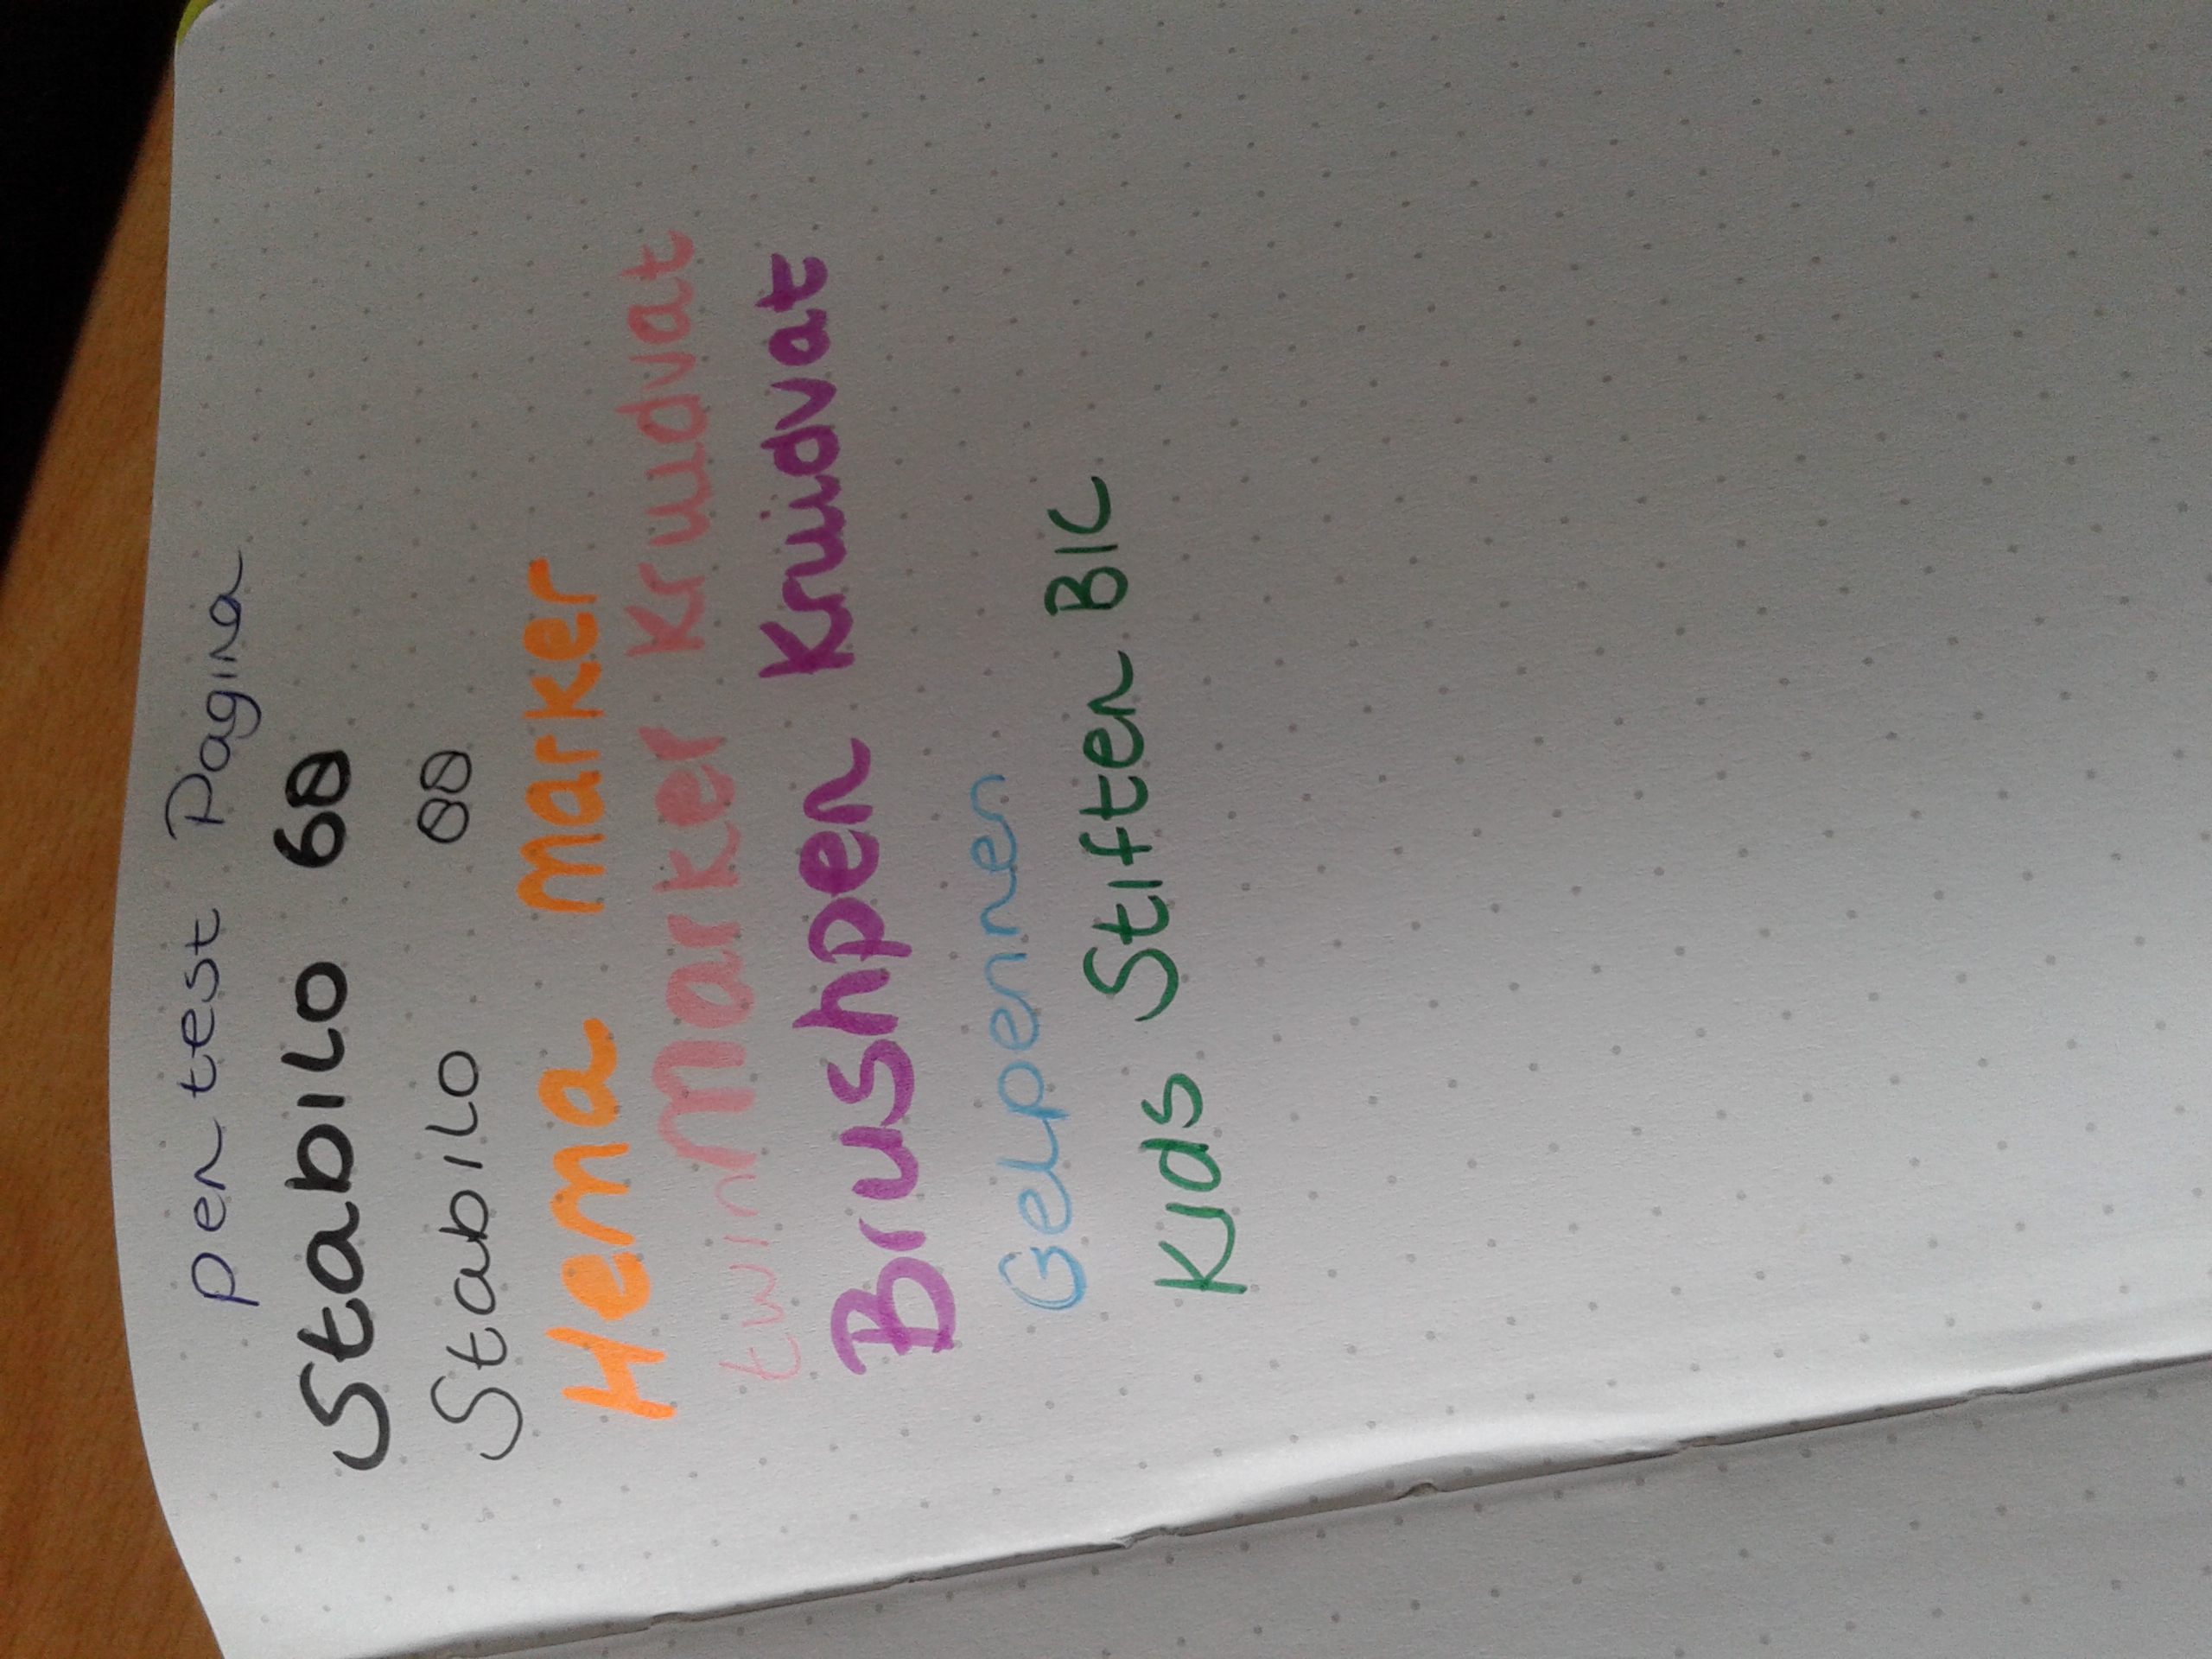 pen test Pagina
Stabilo 68
Stabilo 88
Hema marker
twinmarker Kruidvat
Brushpen Kruidvat
Gelpennen
Kids Stiften BIC